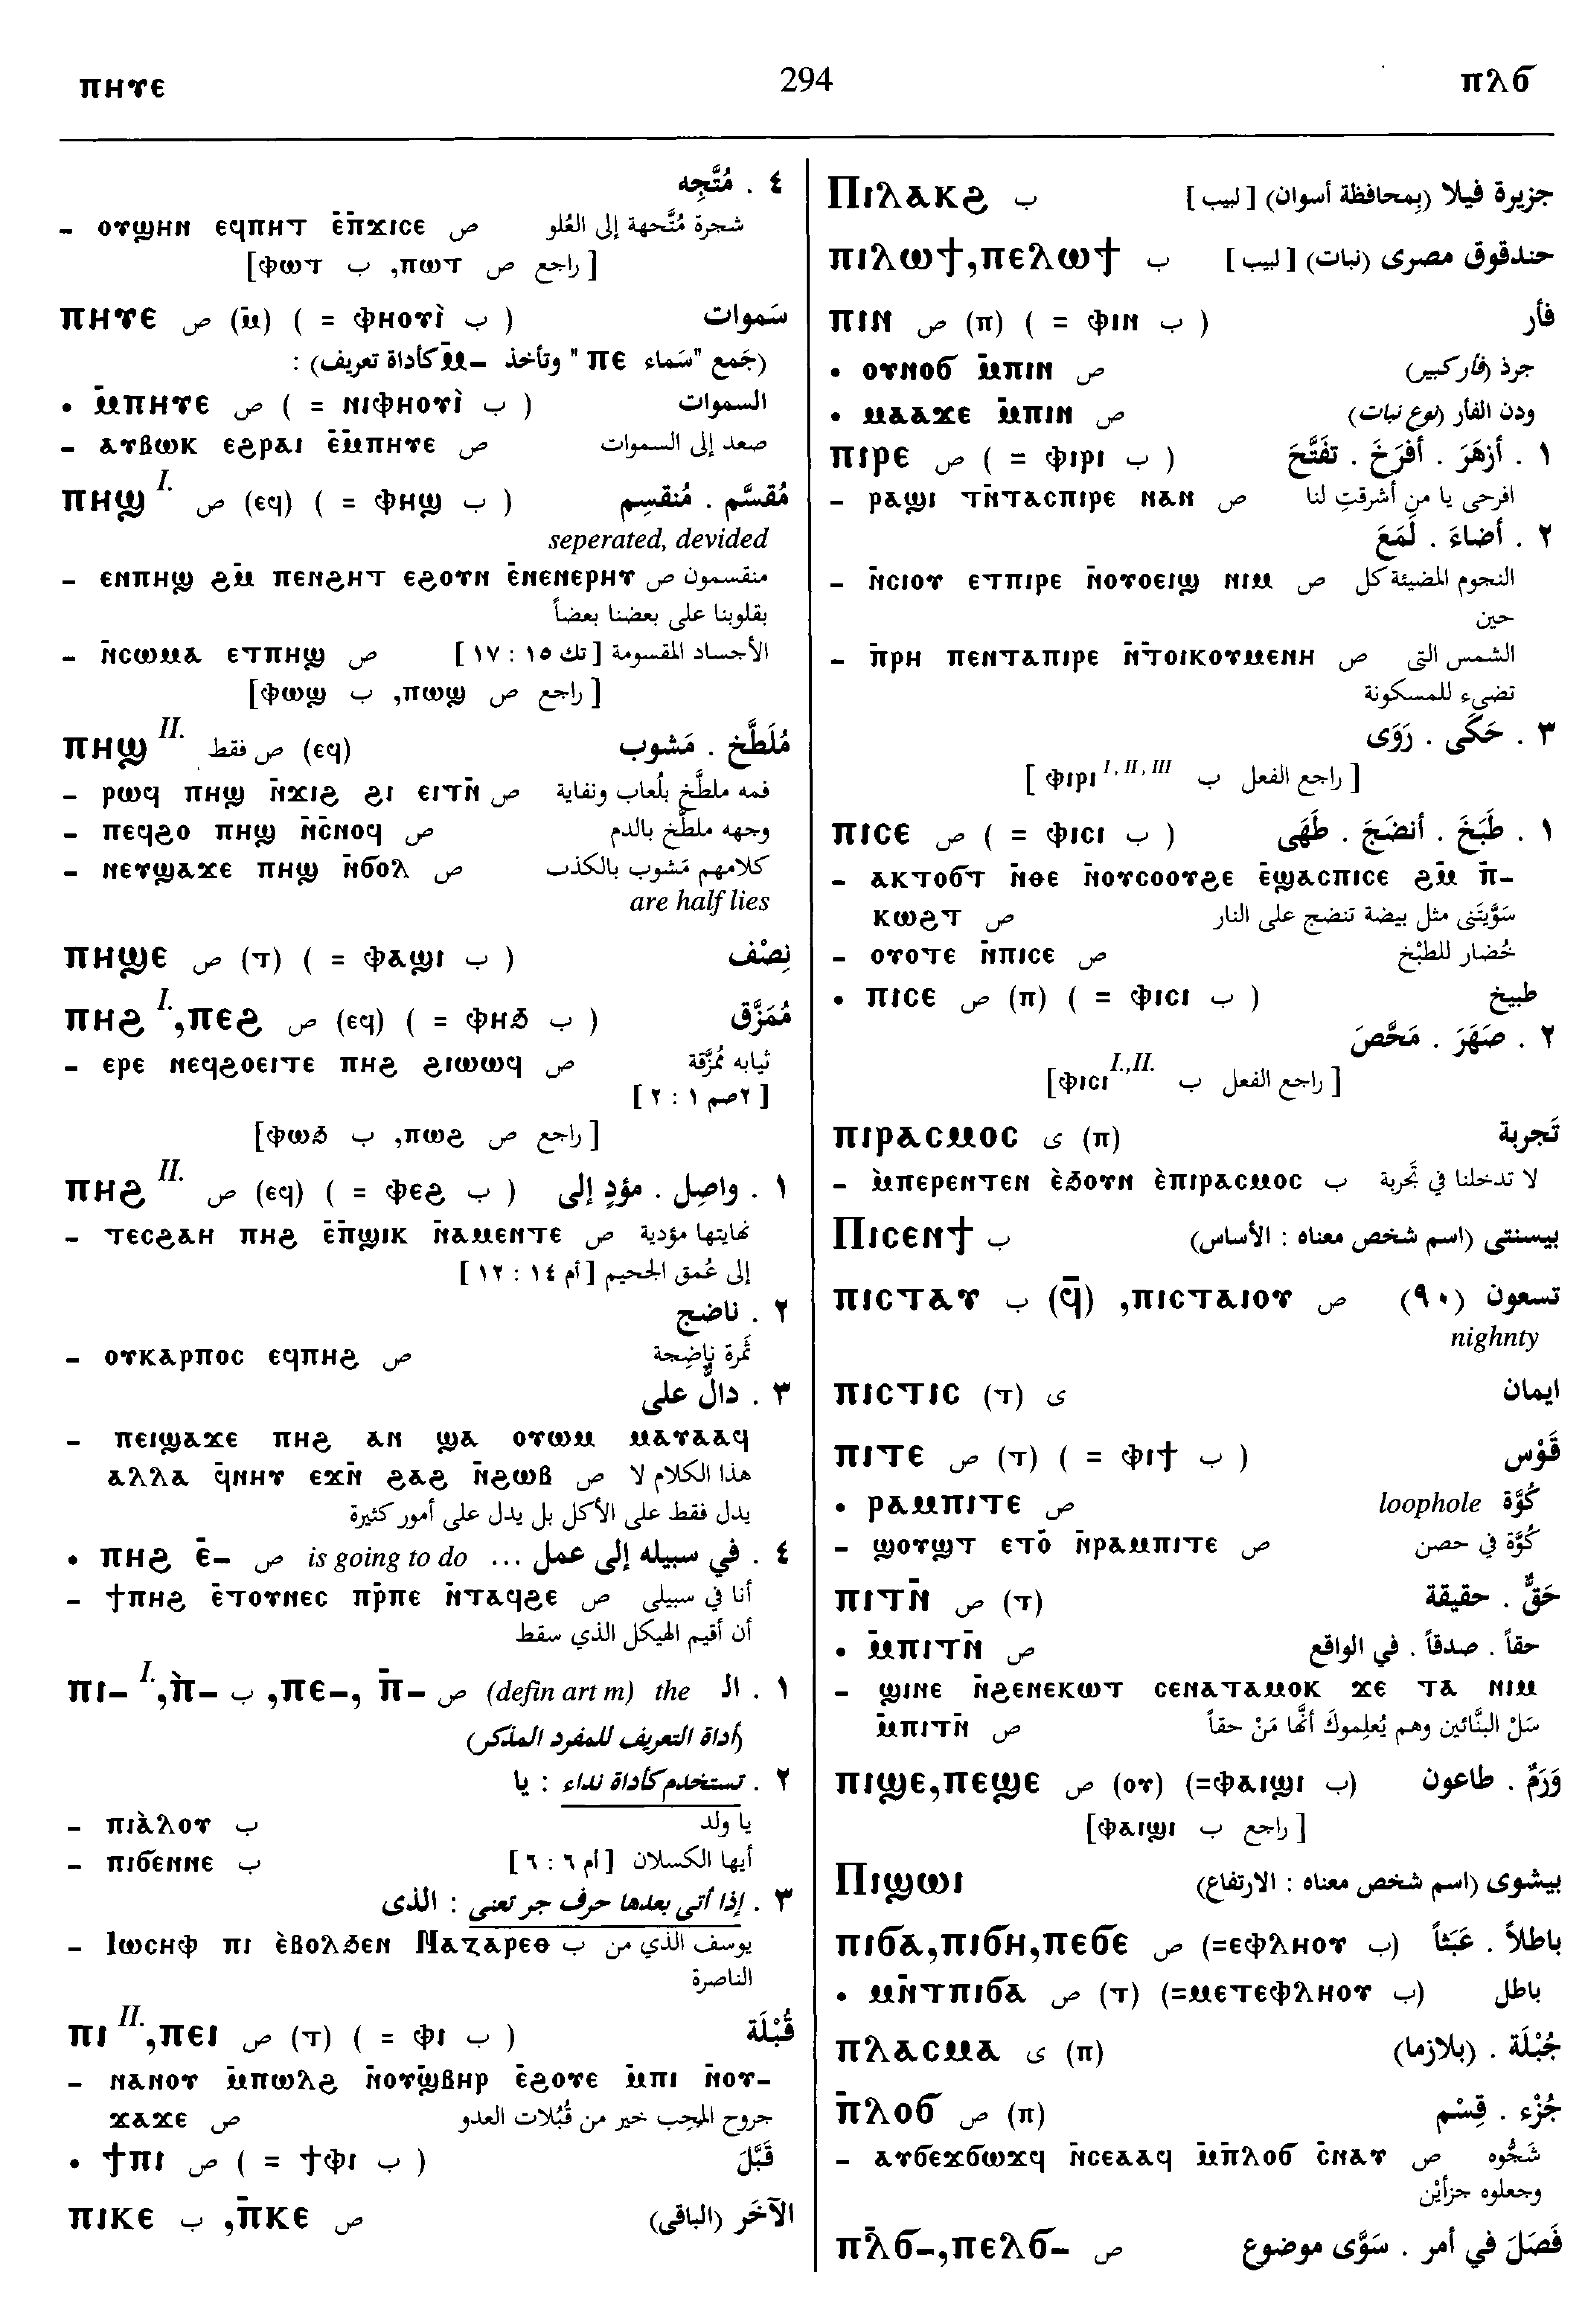 ⲡⲏⲩⲉ 294 ⲡⲗϭ
٤ . مُتَّجِه
– ⲟⲩϣⲏⲛ ⲉϥⲡⲏⲧ ⲉ̄ⲡ̄ϫⲓⲥⲉ ص شجرة مُتَّحهة إلى العُلو
[راجع ص ⲡⲱⲧ, ب ⲫⲱⲧ]
ⲡⲏⲩⲉ ص (ⲙ̄) ( = ⲫⲏⲟⲩⲓ̀ ب ) سَموات
(جَمع "سَماء ⲡⲉ " وتأخذ –ⲙ̄ كأداة تعريف) :
• ⲙ̄ⲡⲏⲩⲉ ص ( = ⲛⲓⲫⲏⲟⲩⲓ̀ ب ) السموات
– ⲁⲩⲃⲱⲕ ⲉϩⲣⲁⲓ ⲉ̄ⲙ̄ⲡⲏⲩⲉ ص صعد إلى السموات
ⲡⲏϣ I. ص (ⲉϥ) ( = ⲫⲏϣ ب ) مُقسَّم . مُنقسِم
seperated, devided
– ⲉⲛⲡⲏϣ ϩⲙ̄ ⲡⲉⲛϩⲏⲧ ⲉϩⲟⲩⲛ ⲉ̄ⲛⲉⲛⲉⲣⲏⲩ ص منقسمون
بقلوبنا على بعضنا بعضاً
– ⲛ̄ⲥⲱⲙⲁ ⲉⲧⲡⲏϣ ص الأجساد المقسومة [تك ١٥ : ١٧]
[راجع ص ⲡⲱϣ, ب ⲫⲱϣ]
ⲡⲏϣ II. (ⲉϥ) ص فقط مُلَطَّخ . مَشوب
– ⲣⲱϥ ⲡⲏϣ ⲛ̄ϫⲓϩ ϩⲓ ⲉⲓⲧⲛ̄ ص فمه ملطَّخ بلُعاب ونفاية
– ⲡⲉϥϩⲟ ⲡⲏϣ ⲛ̄ⲥ̄ⲛⲟϥ ص وجهه ملطَّخ بالدم
– ⲛⲉⲩϣⲁϫⲉ ⲡⲏϣ ⲛ̄ϭⲟⲗ ص كلامهم مَشوب بالكذب
are half lies
ⲡⲏϣⲉ ص (ⲧ) ( = ⲫⲁϣⲓ ب ) نِصْف
ⲡⲏϩ I.,ⲡⲉϩ ص (ⲉϥ) ( = ⲫⲏϧ ب ) مُمَزَّق
– ⲉⲣⲉ ⲛⲉϥϩⲟⲉⲓⲧⲉ ⲡⲏϩ ϩⲓⲱⲱϥ ص ثيابه مُمزَّقة
[٢صم ١ : ٢]
[راجع ص ⲡⲱϩ, ب ⲫⲱϧ]
ⲡⲏϩ II. ص (ⲉϥ) ( = ⲫⲉϩ ب ) ١ . واصِل . مؤدٍ إلى
– ⲧⲉⲥϩⲁⲏ ⲡⲏϩ ⲉ̄ⲡ̄ϣⲓⲕ ⲛ̄ⲁⲙⲉⲛⲧⲉ ص نهايتها مؤدية
إلى عُمق الجحيم [أم ١٤ : ١٢]
٢ . ناضج
– ⲟⲩⲕⲁⲣⲡⲟⲥ ⲉϥⲡⲏϩ ص ثَمرة ناضِحة
٣ . دالٌ على
– ⲡⲉⲓϣⲁϫⲉ ⲡⲏϩ ⲁⲛ ϣⲁ ⲟⲩⲱⲙ ⲙⲁⲩⲁⲁϥ
ⲁⲗⲗⲁ ϥ̄ⲛⲏⲩ ⲉϫⲛ̄ ϩⲁϩ ⲛ̄ϩⲱⲃ ص هذا الكلام لا
يدل فقط على الأكل بل يدل على أمور كثيرة
• ⲡⲏϩ ⲉ̄– ص is going to do ... ٤ . في سبيله إلى عمل
– ϯⲡⲏϩ ⲉ̄ⲧⲟⲩⲛⲉⲥ ⲡⲣ̄ⲡⲉ ⲛ̄ⲧⲁϥϩⲉ ص أنا في سبيلى
أن أقيم الهيكل الذي سقط
ⲡⲓ– I.,ⲡ̀– ب ,ⲡⲉ–, ⲡ̄– ص (defin art m) the ١ . الـ
(أداة التعريف للمفرد المذكر)
٢ . تستخدم كأداة نداء : يا
– ⲡⲓⲁ̀ⲗⲟⲩ ب يا ولد
– ⲡⲓϭⲉⲛⲛⲉ ب أيها الكسلان [أم ٦ : ٦]
٣ . إذا أتى بعدها حرف جر تعنى : الذى
– Ⲓⲱⲥⲏⲫ ⲡⲓ ⲉ̀ⲃⲟⲗϧⲉⲛ Ⲛⲁⲍⲁⲣⲉⲑ ب يوسف الذي من
الناصرة
ⲡⲓ II.,ⲡⲉⲓ ص (ⲧ) ( = ⲫⲓ ب ) قُبْلَة
– ⲛⲁⲛⲟⲩ ⲙ̄ⲡⲱⲗϩ ⲛ̄ⲟⲩϣ̄ⲃⲏⲣ ⲉ̄ϩⲟⲩⲉ ⲙ̄ⲡⲓ ⲛ̄ⲟⲩ–
ϫⲁϫⲉ ص جروح المحِب خير من قُبُلات العدو
• ϯⲡⲓ ص ( = ϯⲫⲓ ب ) قَبَّلَ
ⲡⲓⲕⲉ ب ,ⲡ̄ⲕⲉ ص الآخَر (الباقى)
Ⲡⲓⲗⲁⲕϩ ب جزيرة فيلا (بمحافظة أسوان) [لبيب]
ⲡⲓⲗⲱϯ,ⲡⲉⲗⲱϯ ب حندقوق مصرى (نبات) [لبيب]
ⲡⲓⲛ ص (ⲡ) ( = ⲫⲓⲛ ب ) فأر
• ⲟⲩⲛⲟϭ ⲙ̄ⲡⲓⲛ ص جرذ (فأر كبير)
• ⲙⲁⲁϫⲉ ⲙ̄ⲡⲓⲛ ص ودن الفأر (نوع نبات)
ⲡⲓⲣⲉ ص ( = ⲫⲓⲣⲓ ب ) ١ . أزهَرَ . أفرَخَ . تفَتَّحَ
– ⲣⲁϣⲓ ⲧⲛ̄ⲧⲁⲥⲡⲓⲣⲉ ⲛⲁⲛ ص افرحى يا من أشرقتِ لنا
٢ . أضاءَ . لَمَعَ
– ⲛ̄ⲥⲓⲟⲩ ⲉⲧⲡⲓⲣⲉ ⲛ̄ⲟⲩⲟⲉⲓϣ ⲛⲓⲙ ص النجوم المضيئة كل
حين
– ⲡ̄ⲣⲏ ⲡⲉⲛⲧⲁⲡⲓⲣⲉ ⲛ̄ⲧⲟⲓⲕⲟⲩⲙⲉⲛⲏ ص الشمس التى
تضىء للمسكونة
٣ . حَكَى . رَوَى
[راجع الفعل ب ⲫⲓⲣⲓ I, II, III]
ⲡⲓⲥⲉ ص ( = ⲫⲓⲥⲓ ب ) ١ . طَبَخَ . أنضَجَ . طَهَى
– ⲁⲕⲧⲟϭⲧ ⲛ̄ⲑⲉ ⲛ̄ⲟⲩⲥⲟⲟⲩϩⲉ ⲉ̄ϣⲁⲥⲡⲓⲥⲉ ϩⲙ̄ ⲡ̄–
ⲕⲱϩⲧ ص سَوَّيتَنى مثل بيضة تنضج على النار
– ⲟⲩⲟⲧⲉ ⲛ̄ⲡⲓⲥⲉ ص خُضار للطبْخ
• ⲡⲓⲥⲉ ص (ⲡ) ( = ⲫⲓⲥⲓ ب ) طبيخ
٢ . صَهَرَ . مَحَّصَ
[راجع الفعل ب ⲫⲓⲥⲓ I.,II.]
ⲡⲓⲣⲁⲥⲙⲟⲥ ى (ⲡ) تَجربة
– ⲙ̀ⲡⲉⲣⲉⲛⲧⲉⲛ ⲉ̀ϧⲟⲩⲛ ⲉ̀ⲡⲓⲣⲁⲥⲙⲟⲥ ب لا تدخلنا في تَجربة
Ⲡⲓⲥⲉⲛϯ ب بيسنتى (اسم شخص معناه : الأساس)
ⲡⲓⲥⲧⲁⲩ ب (ϥ̄) ,ⲡⲓⲥⲧⲁⲓⲟⲩ ص تسعون (٩٠)
nighnty
ⲡⲓⲥⲧⲓⲥ (ⲧ) ى ايمان
ⲡⲓⲧⲉ ص (ⲧ) ( = ⲫⲓϯ ب ) قَوْس
• ⲣⲁⲙⲡⲓⲧⲉ ص loophole كُوَّة
– ϣⲟⲩϣⲧ ⲉⲧⲟ̄ ⲛ̄ⲣⲁⲙⲡⲓⲧⲉ ص كُوَّة في حصن
ⲡⲓⲧⲛ̄ ص (ⲧ) حَقٌّ . حقيقة
• ⲙ̄ⲡⲓⲧⲛ̄ ص حقاً . صدقاً . في الواقع
– ϣⲓⲛⲉ ⲛ̄ϩⲉⲛⲉⲕⲱⲧ ⲥⲉⲛⲁⲧⲁⲙⲟⲕ ϫⲉ ⲧⲁ ⲛⲓⲙ
ⲙ̄ⲡⲓⲧⲛ̄ ص سَلْ البنَّائين وهم يُعلِموكَ أنَّها مَنْ حقاً
ⲡⲓϣⲉ,ⲡⲉϣⲉ ص (ⲟⲩ) (=ⲫⲁⲓϣⲓ ب) وَرَمٌ . طاعون
[راجع ب ⲫⲁⲓϣⲓ]
Ⲡⲓϣⲱⲓ بيشوى (اسم شخص معناه : الارتفاع)
ⲡⲓϭⲁ,ⲡⲓϭⲏ,ⲡⲉϭⲉ ص (=ⲉⲫⲗⲏⲟⲩ ب) باطلاً . عَبَثاً
• ⲙⲛ̄ⲧⲡⲓϭⲁ ص (ⲧ) (=ⲙⲉⲧⲉⲫⲗⲏⲟⲩ ب) باطل
ⲡⲗⲁⲥⲙⲁ ى (ⲡ) جُبْلَة . (بلازما)
ⲡ̄ⲗⲟϭ ص (ⲡ) جُزْء . قِسْم
– ⲁⲩϭⲉϫϭⲱϫϥ ⲛ̄ⲥⲉⲁⲁϥ ⲙ̄ⲡ̄ⲗⲟϭ ⲥ̄ⲛⲁⲩ ص شَجُّوه
وجعلوه جزأيْن
ⲡⲗ̄ϭ–,ⲡⲉⲗϭ– ص فَصَلَ في أمر . سَوَّى موضوع